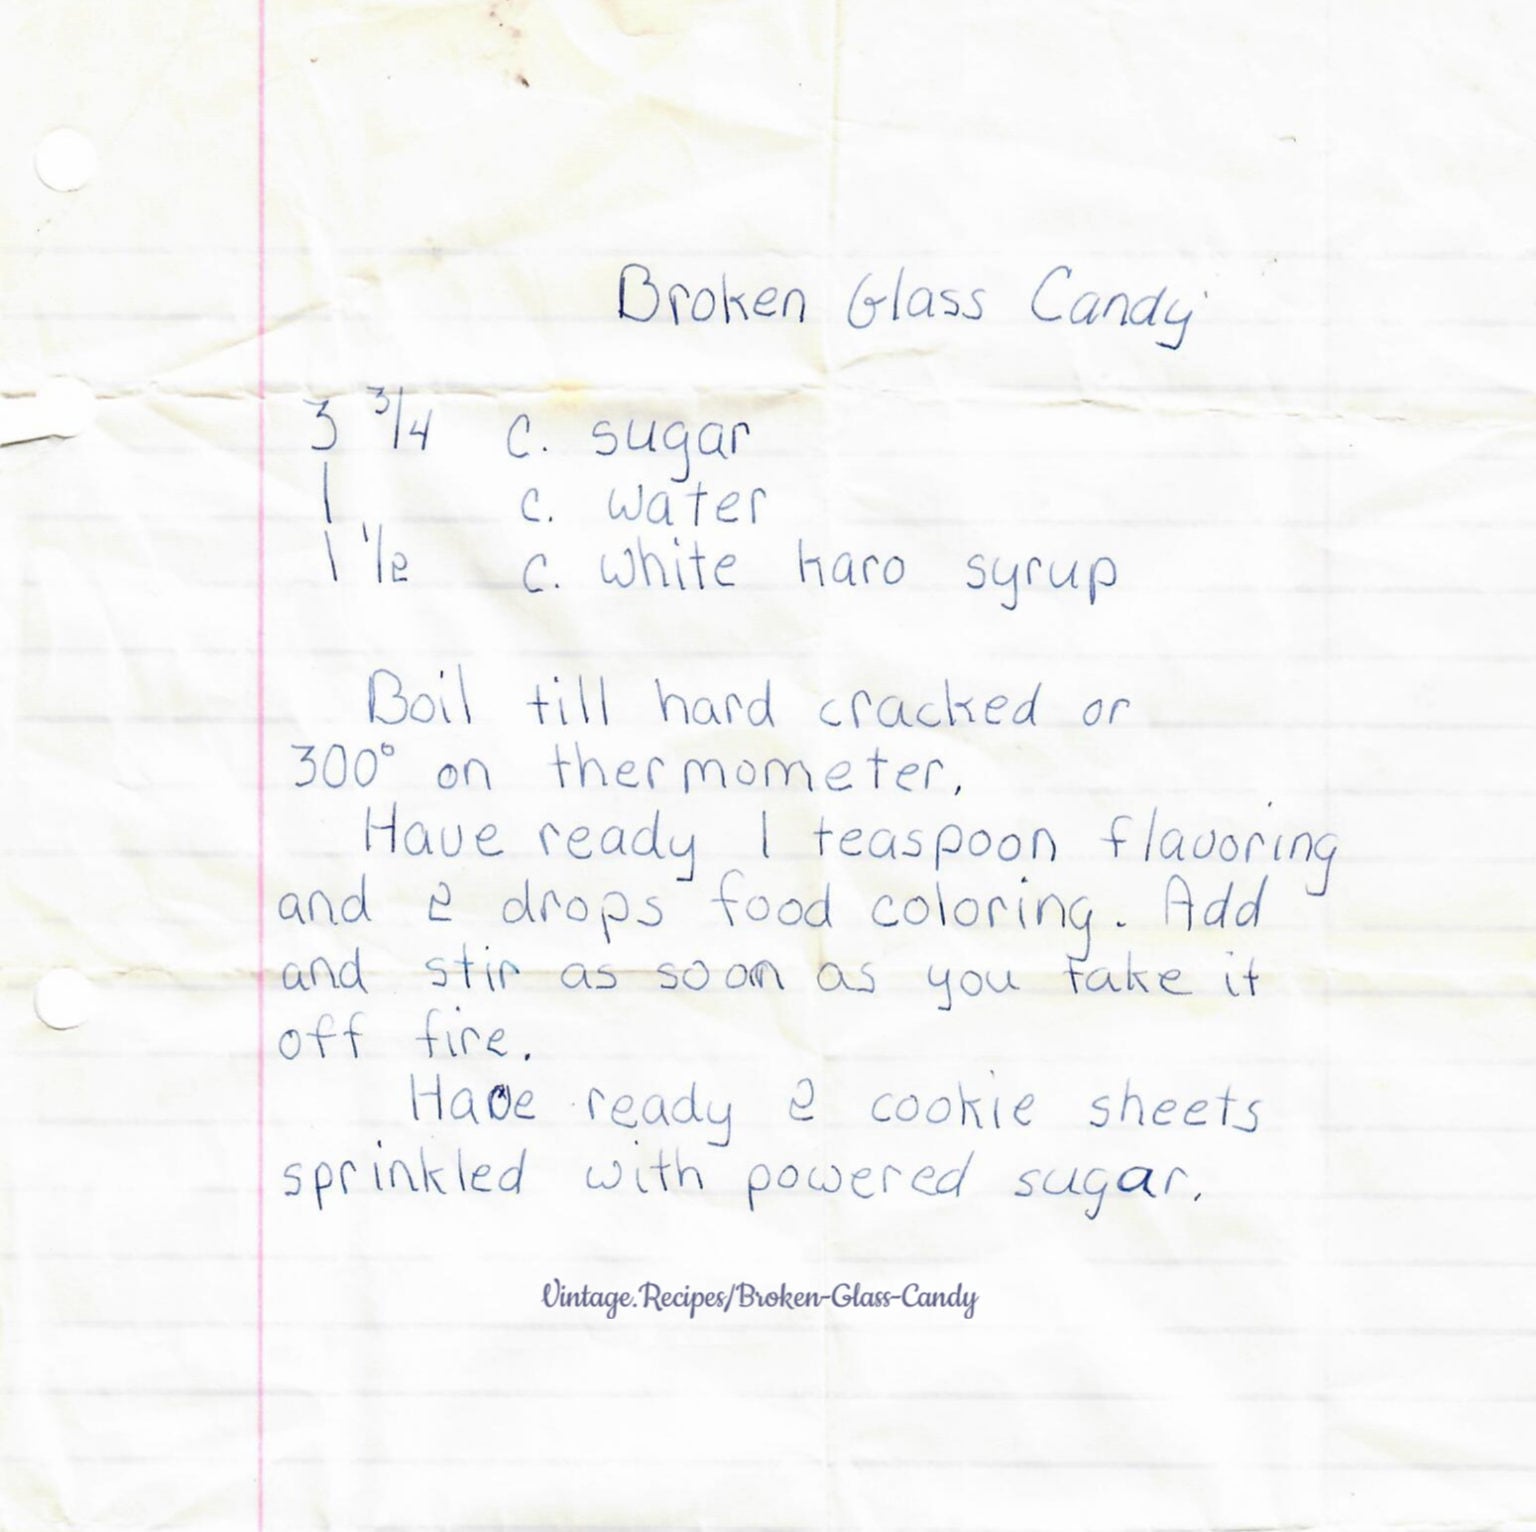 Broken Glass Candy
3 3/4 c. sugar
1 c. water
1 1/2 c. white karo syrup
Boil till hard cracked or
300° on thermometer.
Have ready 1 teaspoon flavoring
and 2 drops food coloring. Add
and stir as soon as you take it
off fire.
Have ready 2 cookie sheets
sprinkled with powered sugar.
Vintage.Recipes/Broken-Glass-Candy